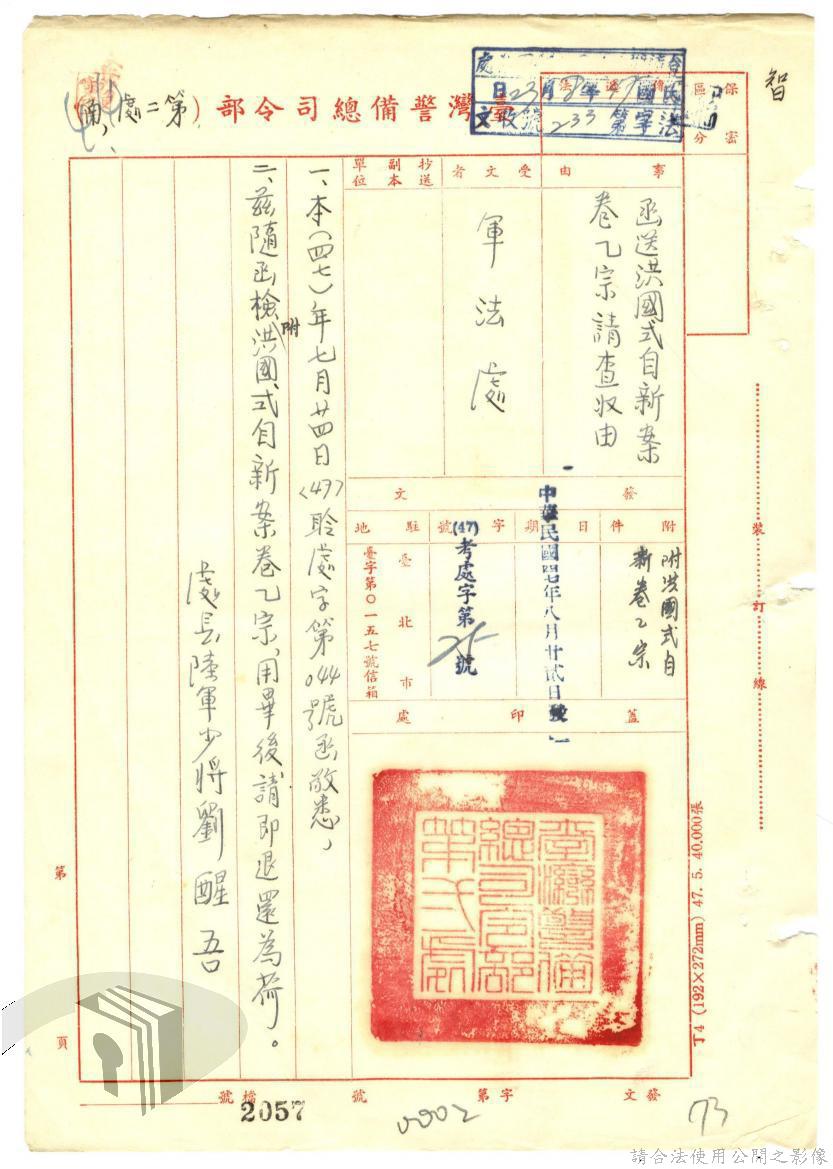 智
臺灣警備總司令部（第二處）函
保密
區分
民國47年8月23日
法字第233號
收文
事由
函送洪國式自新案
卷乙宗請查收由
受文者
軍法處
抄送
副本
單位
發文
附件
附洪國式自
新卷乙宗
日期
中華民國四七年八月廿貳日發
字號
(47)考處字第25號
駐地
臺北市
臺字第〇一五七號信箱
蓋印處
臺灣警備
總司令部
第弍處
一、本(四七)年七月廿四日(47)聆處字第044號函敬悉，
二、茲隨函檢附洪國式自新案卷乙宗，用畢後，請即退還為荷。
處長陸軍少將劉醒吾
裝訂線
丁4 (192×272mm) 47. 5. 40.000張
第頁
發文字第號
檔號2057
0002
73
請合法使用公開之影像